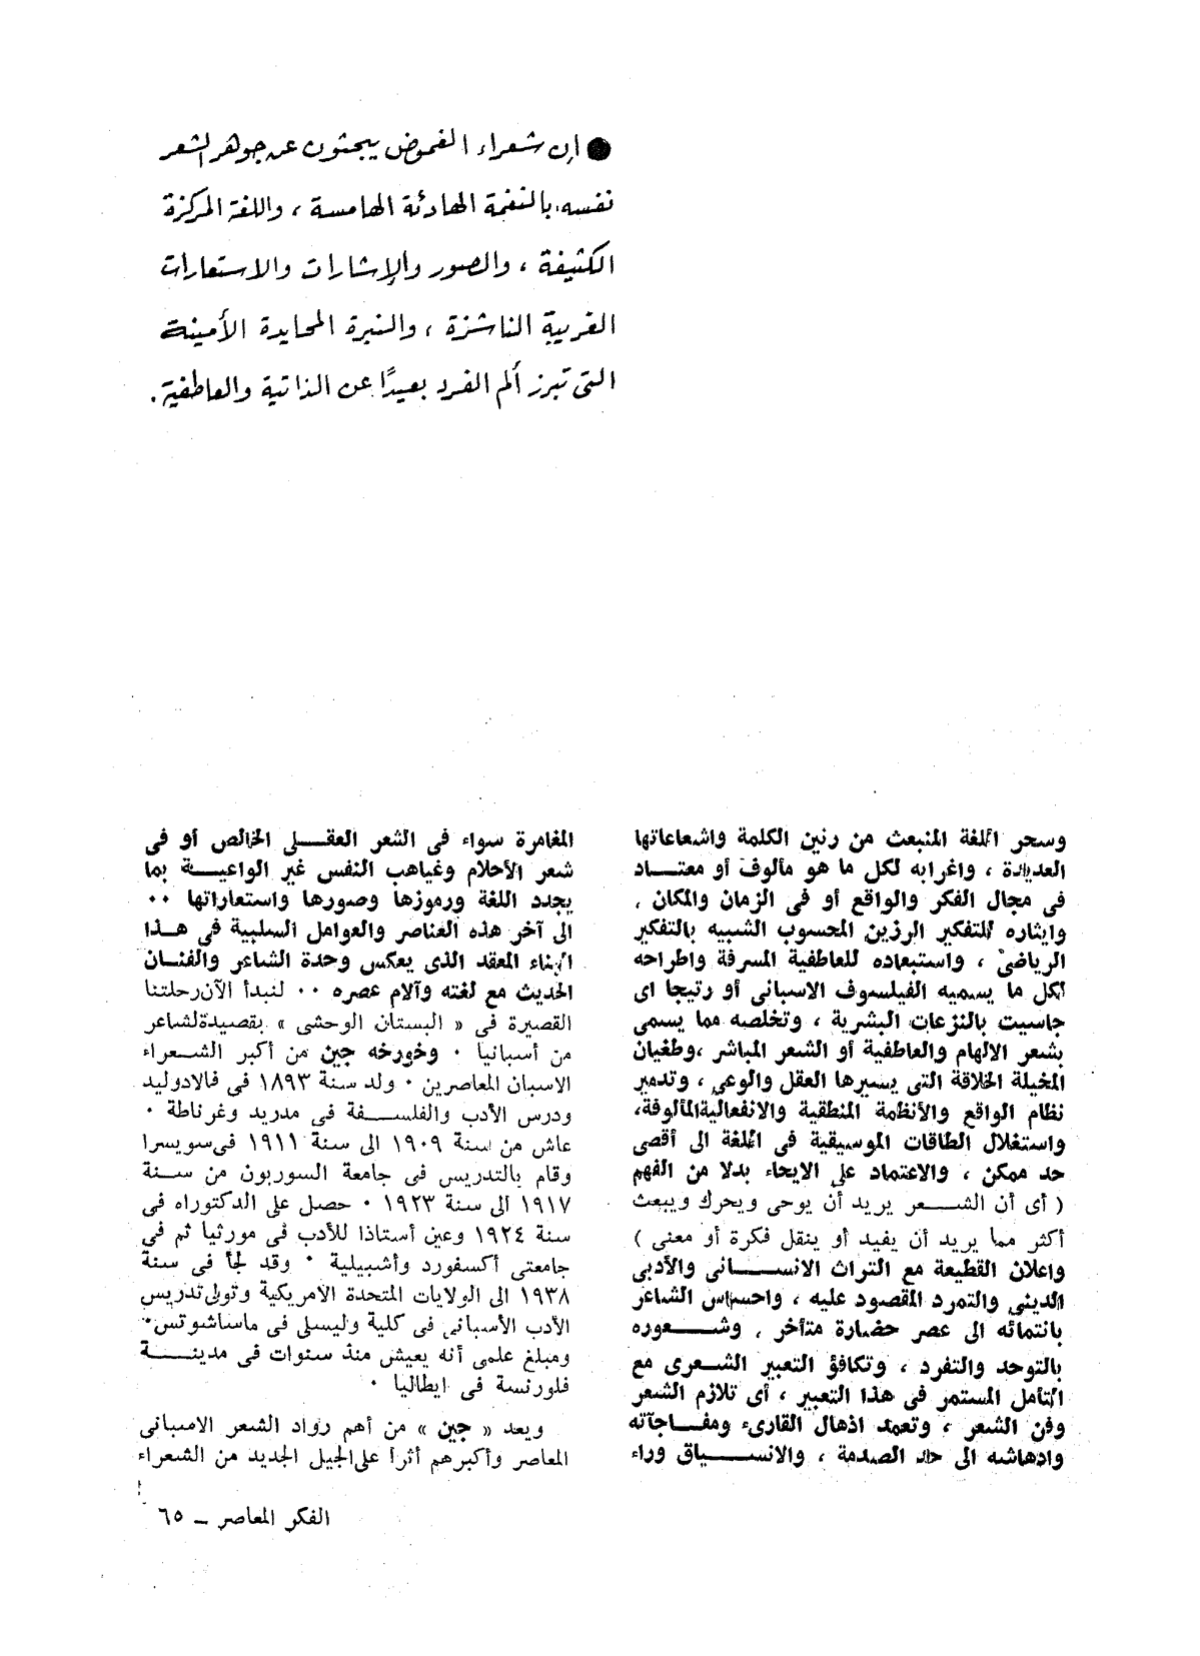 ● إن شعراء الغموض يبحثون عن جوهر الشعر
نفسه، بالنغمة الهادئة الهامسة ، واللغة المركزة
الكثيفة ، والصور والإشارات والاستعارات
الغريبة الناشزة ، والنبرة المحايدة الأمينة
التى تبرز ألم الفرد بعيدًا عن الذاتية والعاطفية .
وسحر اللغة المنبعث من رنين الكلمة واشعاعاتها
العديدة ، واغرابه لكل ما هو مألوف أو معتـــاد
فى مجال الفكر والواقع أو فى الزمان والمكان ,
وايثاره للتفكير الرزين المحسوب الشبيه بالتفكير
الرياضى ، واستبعاده للعاطفية المسرفة واطراحه
لكل ما يسميه الفيلسوف الاسبانى أو رتيجا اى
جاسيت بالنزعات البشرية ، وتخلصه مما يسمى
بشعر الالهام والعاطفية أو الشعر المباشر ،وطغيان
المخيلة الخلاقة التى يسيرها العقل والوعى ، وتدمير
نظام الواقع والأنظمة المنطقية والانفعاليةالمألوفة،
واستغلال الطاقات الموسيقية فى اللغة الى أقصى
حد ممكن ، والاعتماد على الايحاء بدلا من الفهم
( أى أن الشـــعر يريد أن يوحى ويحرك ويبعث
أكثر مما يريد أن يفيد أو ينقل فكرة أو معنى )
واعلان القطيعة مع التراث الانســـانى والأدبى
الدينى والتمرد المقصود عليه ، واحساس الشاعر
بانتمائه الى عصر حضارة متأخر , وشـــعوره
بالتوحد والتفرد ، وتكافؤ التعبير الشـعرى مع
التأمل المستمر فى هذا التعبير ، أى تلازم الشعر
وفن الشعر ، وتعمد اذهال القارىء ومفـاجآته
وادهاشه الى حد الصدمة ، والانســـياق وراء
المغامرة سواء فى الشعر العقــلى الخالص أو فى
شعر الأحلام وغياهب النفس غير الواعيـــة بما
يجدد اللغة ورموزها وصورها واستعاراتها ٠٠
الى آخر هذه العناصر والعوامل السلبية فى هــذا
البناء المعقد الذى يعكس وحدة الشاعر والفنــان
الحديث مع لغته وآلام عصره ٠٠ لنبدأ الآنرحلتنا
القصيرة فى « البستان الوحشى » بقصيدةلشاعر
من أسبانيا ٠ وخورخه جين من أكبر الشــعراء
الاسبان المعاصرين ٠ ولد سنة ١٨٩٣ فى فالادوليد
ودرس الأدب والفلســـفة فى مدريد وغرناطة ٠
عاش من سنة ١٩٠٩ الى سنة ١٩١١ فىسويسرا
وقام بالتدريس فى جامعة السوربون من ســنة
١٩١٧ الى سنة ١٩٢٣ ٠ حصل على الدكتوراه فى
سنة ١٩٢٤ وعين أستاذا للأدب فى مورثيا ثم فى
جامعتى أكسفورد وأشبيلية ٠ وقد لجأ فى سنة
١٩٣٨ الى الولايات المتحدة الأمريكية وتولىتدريس
الأدب الأسبانى فى كلية وليسلى فى ماساشوتس٠
ومبلغ علمى أنه يعيش منذ سنوات فى مدينــــة
فلورنسة فى ايطاليا ٠
ويعد « جين » من أهم رواد الشعر الاسبانى
المعاصر وأكبرهم أثرا علىالجيل الجديد من الشعراء
الفكر المعاصر ــ ٦٥